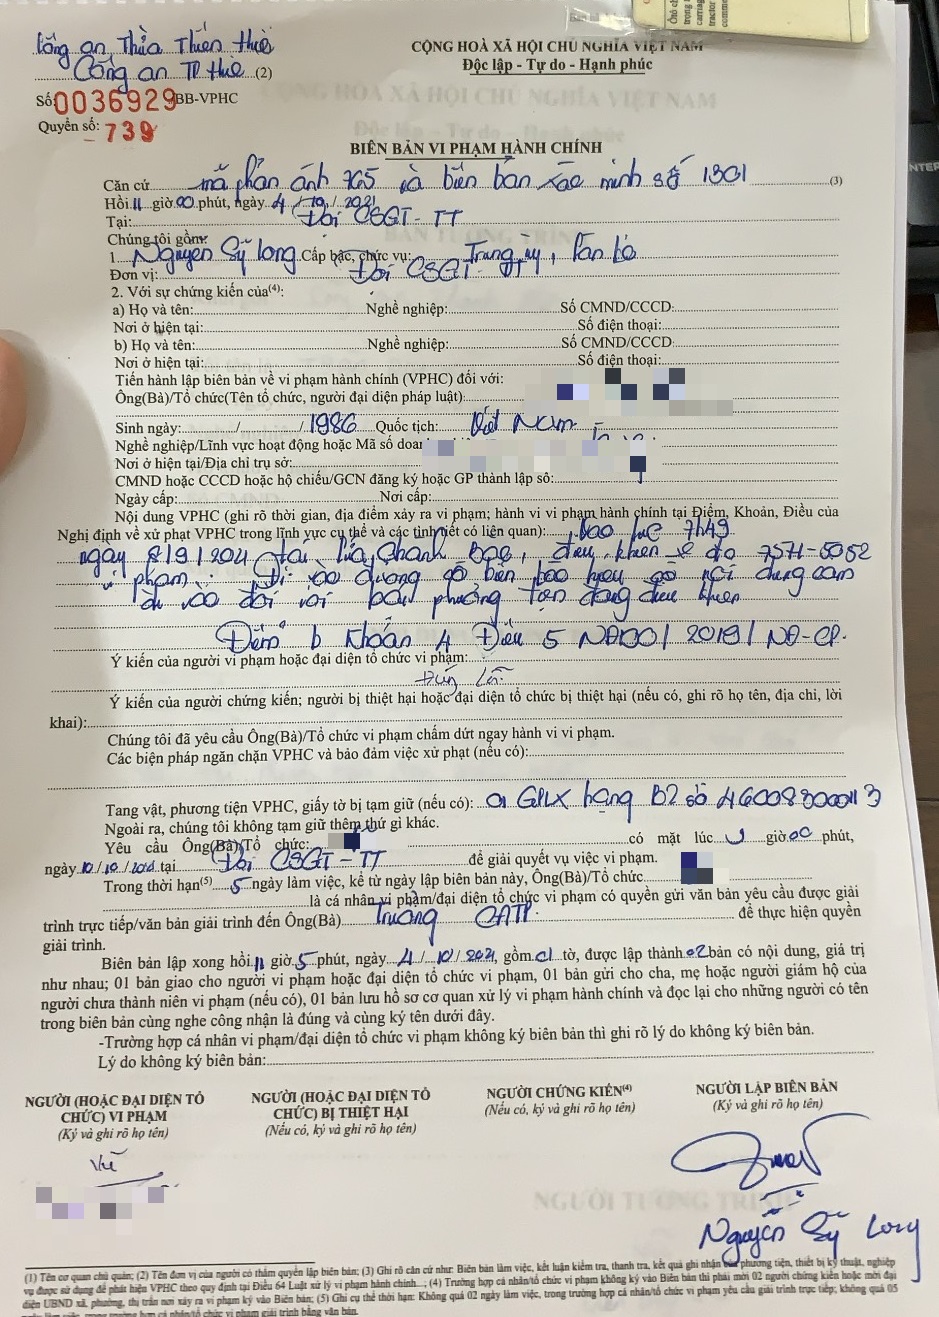 Công an Thừa Thiên Huế
Công an TP Huế (2)
CỘNG HOÀ XÃ HỘI CHỦ NGHĨA VIỆT NAM
Độc lập - Tự do - Hạnh phúc
Số: 0036929 BB-VPHC
Quyển số: 739
BIÊN BẢN VI PHẠM HÀNH CHÍNH
Căn cứ mã phản ánh 765 và biên bản xác minh số 1301 (3)
Hồi 11 giờ 00 phút, ngày 4/10/2021
Tại: Đội CSGT-TT
Chúng tôi gồm:
1. Nguyễn Sỹ Long Cấp bậc, chức vụ: Trung úy, Cán bộ
Đơn vị: Đội CSGT-TT
2. Với sự chứng kiến của(4):
a) Họ và tên: Nghề nghiệp: Số CMND/CCCD:
Nơi ở hiện tại: Số điện thoại:
b) Họ và tên: Nghề nghiệp: Số CMND/CCCD:
Nơi ở hiện tại: Số điện thoại:
Tiến hành lập biên bản về vi phạm hành chính (VPHC) đối với:
Ông(Bà)/Tổ chức(Tên tổ chức, người đại diện pháp luật):
Sinh ngày: / /1986 Quốc tịch: Việt Nam
Nghề nghiệp/Lĩnh vực hoạt động hoặc Mã số
Nơi ở hiện tại/Địa chỉ trụ sở:
CMND hoặc CCCD hoặc hộ chiếu/GCN đăng ký hoặc GP thành lập số:
Ngày cấp: Nơi cấp:
Nội dung VPHC (ghi rõ thời gian, địa điểm xảy ra vi phạm; hành vi vi phạm hành chính tại Điểm, Khoản, Điều của
Nghị định về xử phạt VPHC trong lĩnh vực cụ thể và các tình tiết có liên quan): Vào lúc 7h49
ngày 8/9/2021 tại điều khiển xe ô tô
vi phạm: Đi vào đường có biển báo hiệu có nội dung cấm
đi vào đối với loại phương tiện đang điều khiển
Điểm b Khoản 4 Điều 5 NĐ100/2019/NĐ-CP.
Ý kiến của người vi phạm hoặc đại diện tổ chức vi phạm:
Đúng lỗi
Ý kiến của người chứng kiến; người bị thiệt hại hoặc đại diện tổ chức bị thiệt hại (nếu có, ghi rõ họ tên, địa chỉ, lời
khai):
Chúng tôi đã yêu cầu Ông(Bà)/Tổ chức vi phạm chấm dứt ngay hành vi vi phạm.
Các biện pháp ngăn chặn VPHC và bảo đảm việc xử phạt (nếu có):
Tang vật, phương tiện VPHC, giấy tờ bị tạm giữ (nếu có): 01 GPLX hạng B2 số
Ngoài ra, chúng tôi không tạm giữ thêm thứ gì khác.
Yêu cầu Ông(Bà)/Tổ chức: có mặt lúc giờ 00 phút,
ngày 10/10/2021 tại Đội CSGT-TT để giải quyết vụ việc vi phạm.
Trong thời hạn(5) 5 ngày làm việc, kể từ ngày lập biên bản này, Ông(Bà)/Tổ chức
là cá nhân vi phạm/đại diện tổ chức vi phạm có quyền gửi văn bản yêu cầu được giải
trình trực tiếp/văn bản giải trình đến Ông(Bà) Trưởng CATP. để thực hiện quyền
giải trình.
Biên bản lập xong hồi 11 giờ 5 phút, ngày 4/10/2021, gồm 01 tờ, được lập thành 02 bản có nội dung, giá trị
như nhau; 01 bản giao cho người vi phạm hoặc đại diện tổ chức vi phạm, 01 bản gửi cho cha, mẹ hoặc người giám hộ của
người chưa thành niên vi phạm (nếu có), 01 bản lưu hồ sơ cơ quan xử lý vi phạm hành chính và đọc lại cho những người có tên
trong biên bản cùng nghe công nhận là đúng và cùng ký tên dưới đây.
-Trường hợp cá nhân vi phạm/đại diện tổ chức vi phạm không ký biên bản thì ghi rõ lý do không ký biên bản.
Lý do không ký biên bản:
NGƯỜI (HOẶC ĐẠI DIỆN TỔ CHỨC) VI PHẠM
(Ký và ghi rõ họ tên)
NGƯỜI (HOẶC ĐẠI DIỆN TỔ CHỨC) BỊ THIỆT HẠI
(Nếu có, ký và ghi rõ họ tên)
NGƯỜI CHỨNG KIẾN(4)
(Nếu có, ký và ghi rõ họ tên)
NGƯỜI LẬP BIÊN BẢN
(Ký và ghi rõ họ tên)
Vũ
Nguyễn Sỹ Long
(1) Tên cơ quan chủ quản; (2) Tên đơn vị của người có thẩm quyền lập biên bản; (3) Ghi rõ căn cứ như: Biên bản làm việc, kết luận kiểm tra, thanh tra, kết quả ghi nhận của phương tiện, thiết bị kỹ thuật, nghiệp
vụ được sử dụng để phát hiện VPHC theo quy định tại Điều 64 Luật xử lý vi phạm hành chính...; (4) Trường hợp cá nhân/tổ chức vi phạm không ký vào Biên bản thì phải mời 02 người chứng kiến hoặc mời đại
diện UBND xã, phường, thị trấn nơi xảy ra vi phạm ký vào Biên bản; (5) Ghi cụ thể thời hạn: Không quá 02 ngày làm việc, trong trường hợp cá nhân/tổ chức vi phạm yêu cầu giải trình trực tiếp; không quá 05